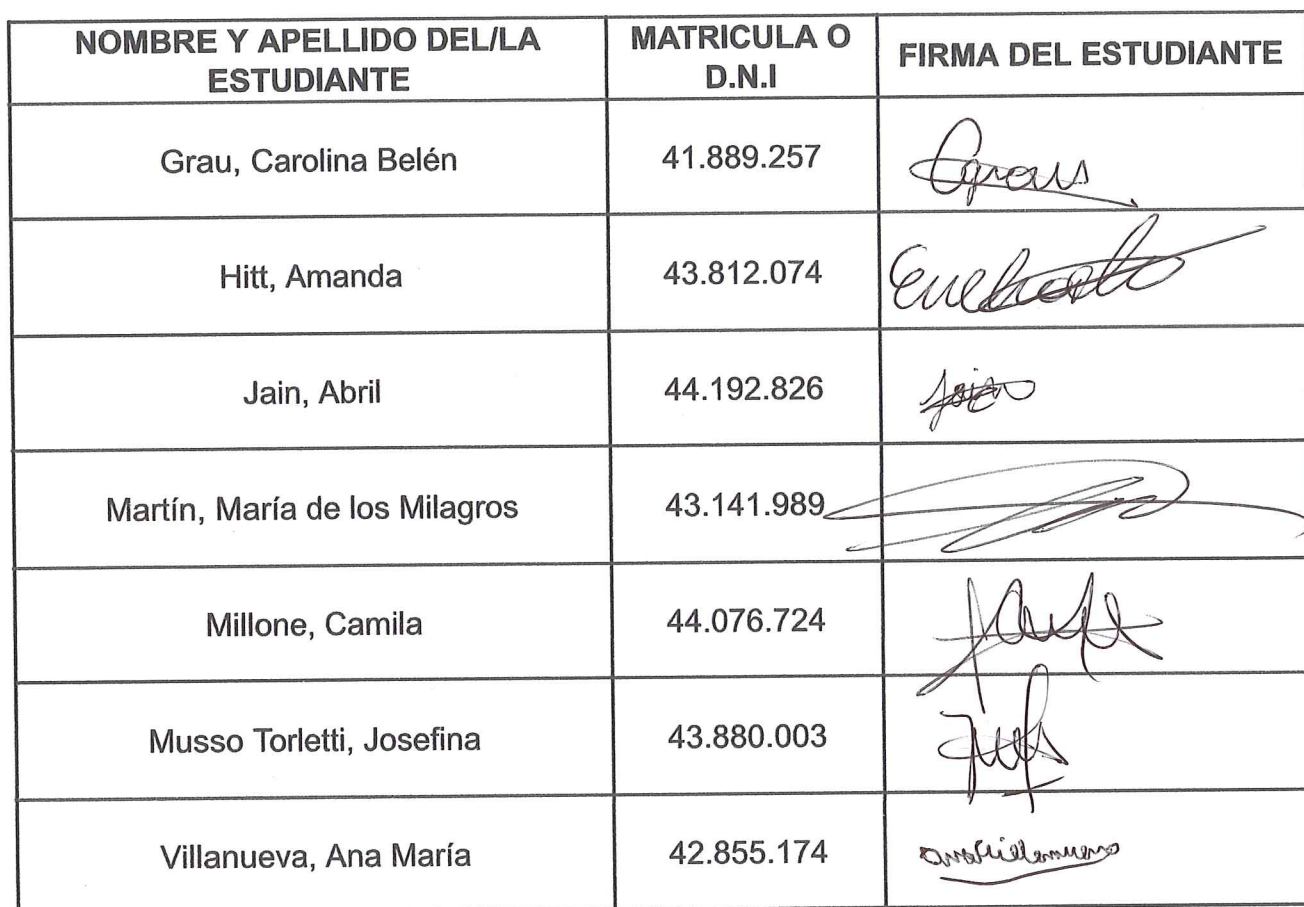 NOMBRE Y APELLIDO DEL/LA
ESTUDIANTE
MATRICULA O
D.N.I
FIRMA DEL ESTUDIANTE
Grau, Carolina Belén
41.889.257
Hitt, Amanda
43.812.074
Jain, Abril
44.192.826
Martín, María de los Milagros
43.141.989
Millone, Camila
44.076.724
Musso Torletti, Josefina
43.880.003
Villanueva, Ana María
42.855.174